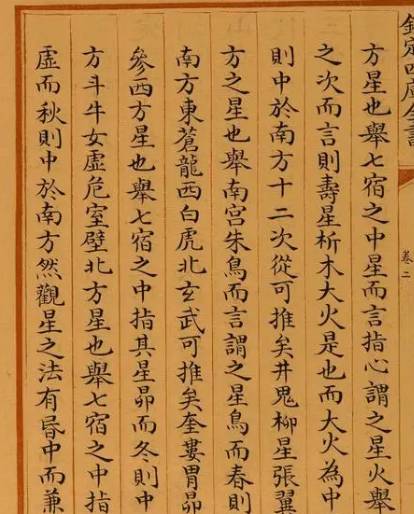 欽定四庫全書
卷二
方星也舉七宿之中星而言指心謂之星火舉
之次而言則壽星析木大火是也而大火為中
則中於南方十二次從可推矣井鬼柳星張翼
方之星也舉南宮朱鳥而言謂之星鳥而春則
南方東蒼龍西白虎北玄武可推矣奎婁胃昴
參西方星也舉七宿之中指其星昴而冬則中
方斗牛女虛危室壁北方星也舉七宿之中指
虛而秋則中於南方然觀星之法有昏中而兼